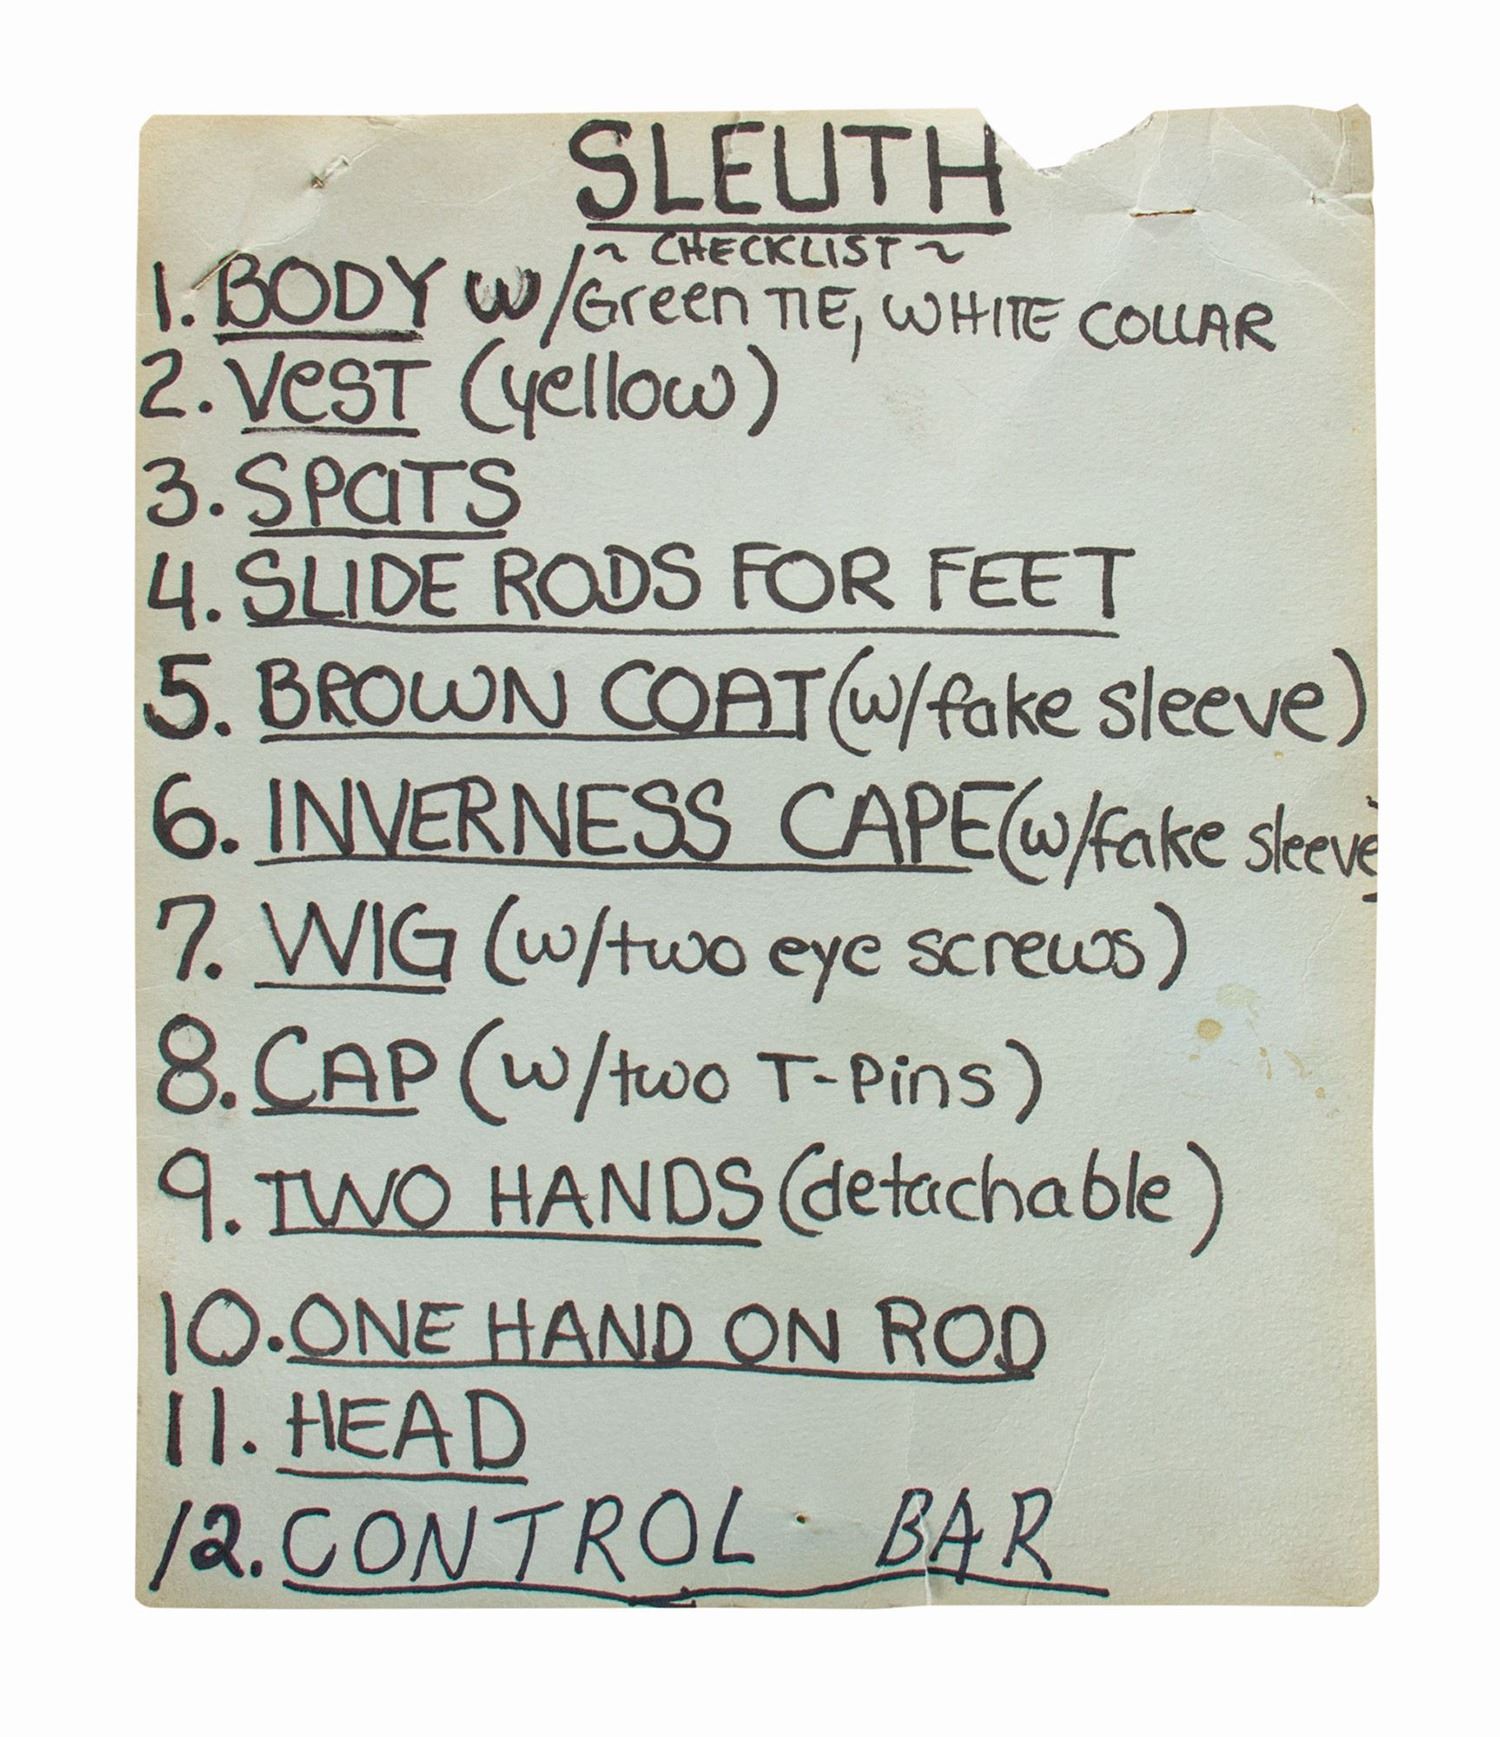 SLEUTH
~ CHECKLIST ~
1. BODY w/Green TIE, WHITE COLLAR
2. VeST (yellow)
3. SPaTS
4. SLIDE RODS FOR FEET
5. BROWN COAT (w/fake sleeve)
6. INVERNESS CAPE (w/fake sleeve)
7. WIG (w/two eye screws)
8. CAP (w/two T-Pins)
9. TWO HANDS (detachable)
10. ONE HAND ON ROD
11. HEAD
12. CONTROL BAR